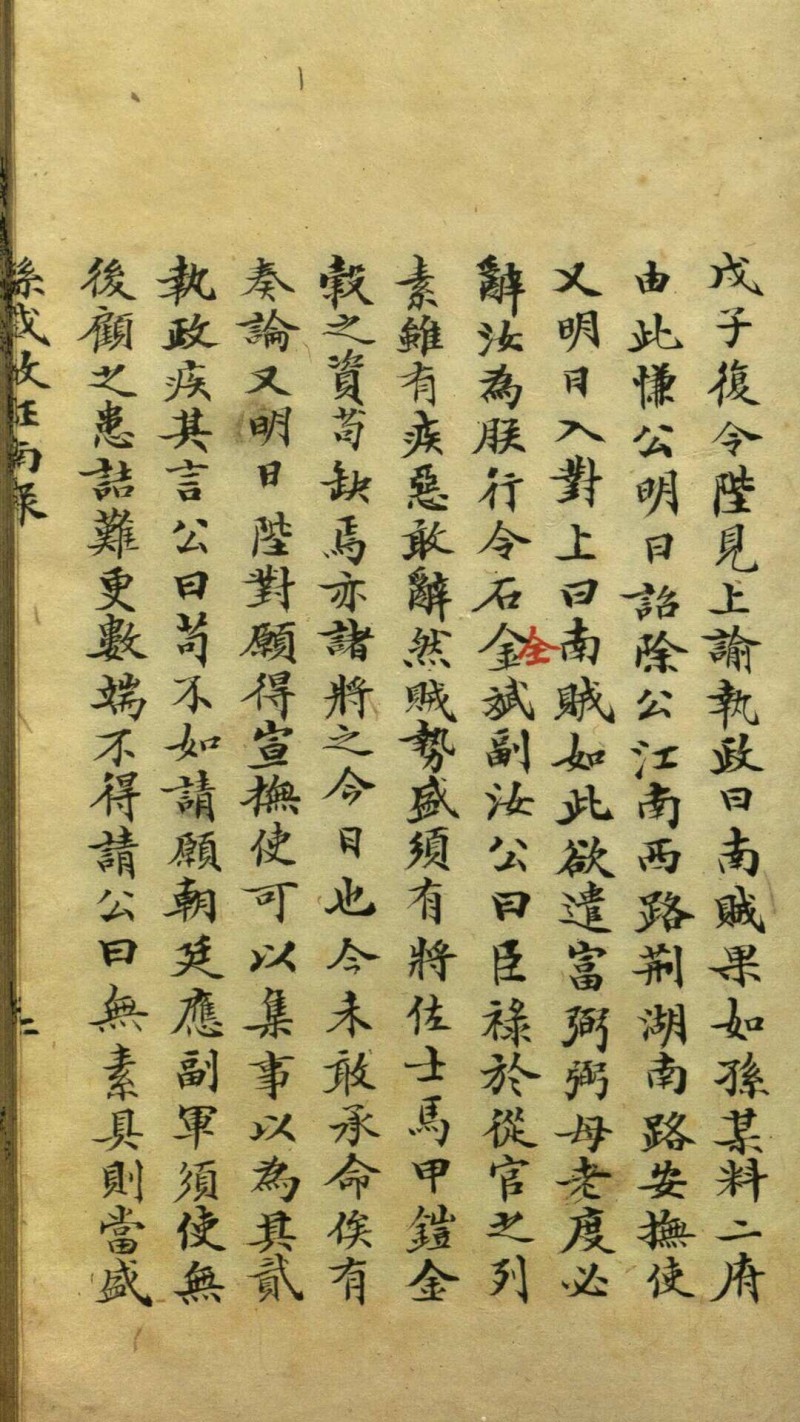 戊子復令陛見上諭執政曰南賊果如孫某料二府
由此慊公明日詔除公江南西路荊湖南路安撫使
又明日入對上曰南賊如此欲遣富弼弼母老度必
辭汝為朕行令石金斌副汝公曰臣祿於從官之列
全
素雖有疾惡敢辭然賊勢盛須有將佐士馬甲鎧金
穀之資苟缺焉亦諸將之今日也今未敢承命俟有
奏論又明日陛對願得宣撫使可以集事以為其貳
執政疾其言公曰苟不如請願朝廷應副軍須使無
後顧之患詰難更數端不得請公曰無素具則當盛
孫威敏征南錄
二